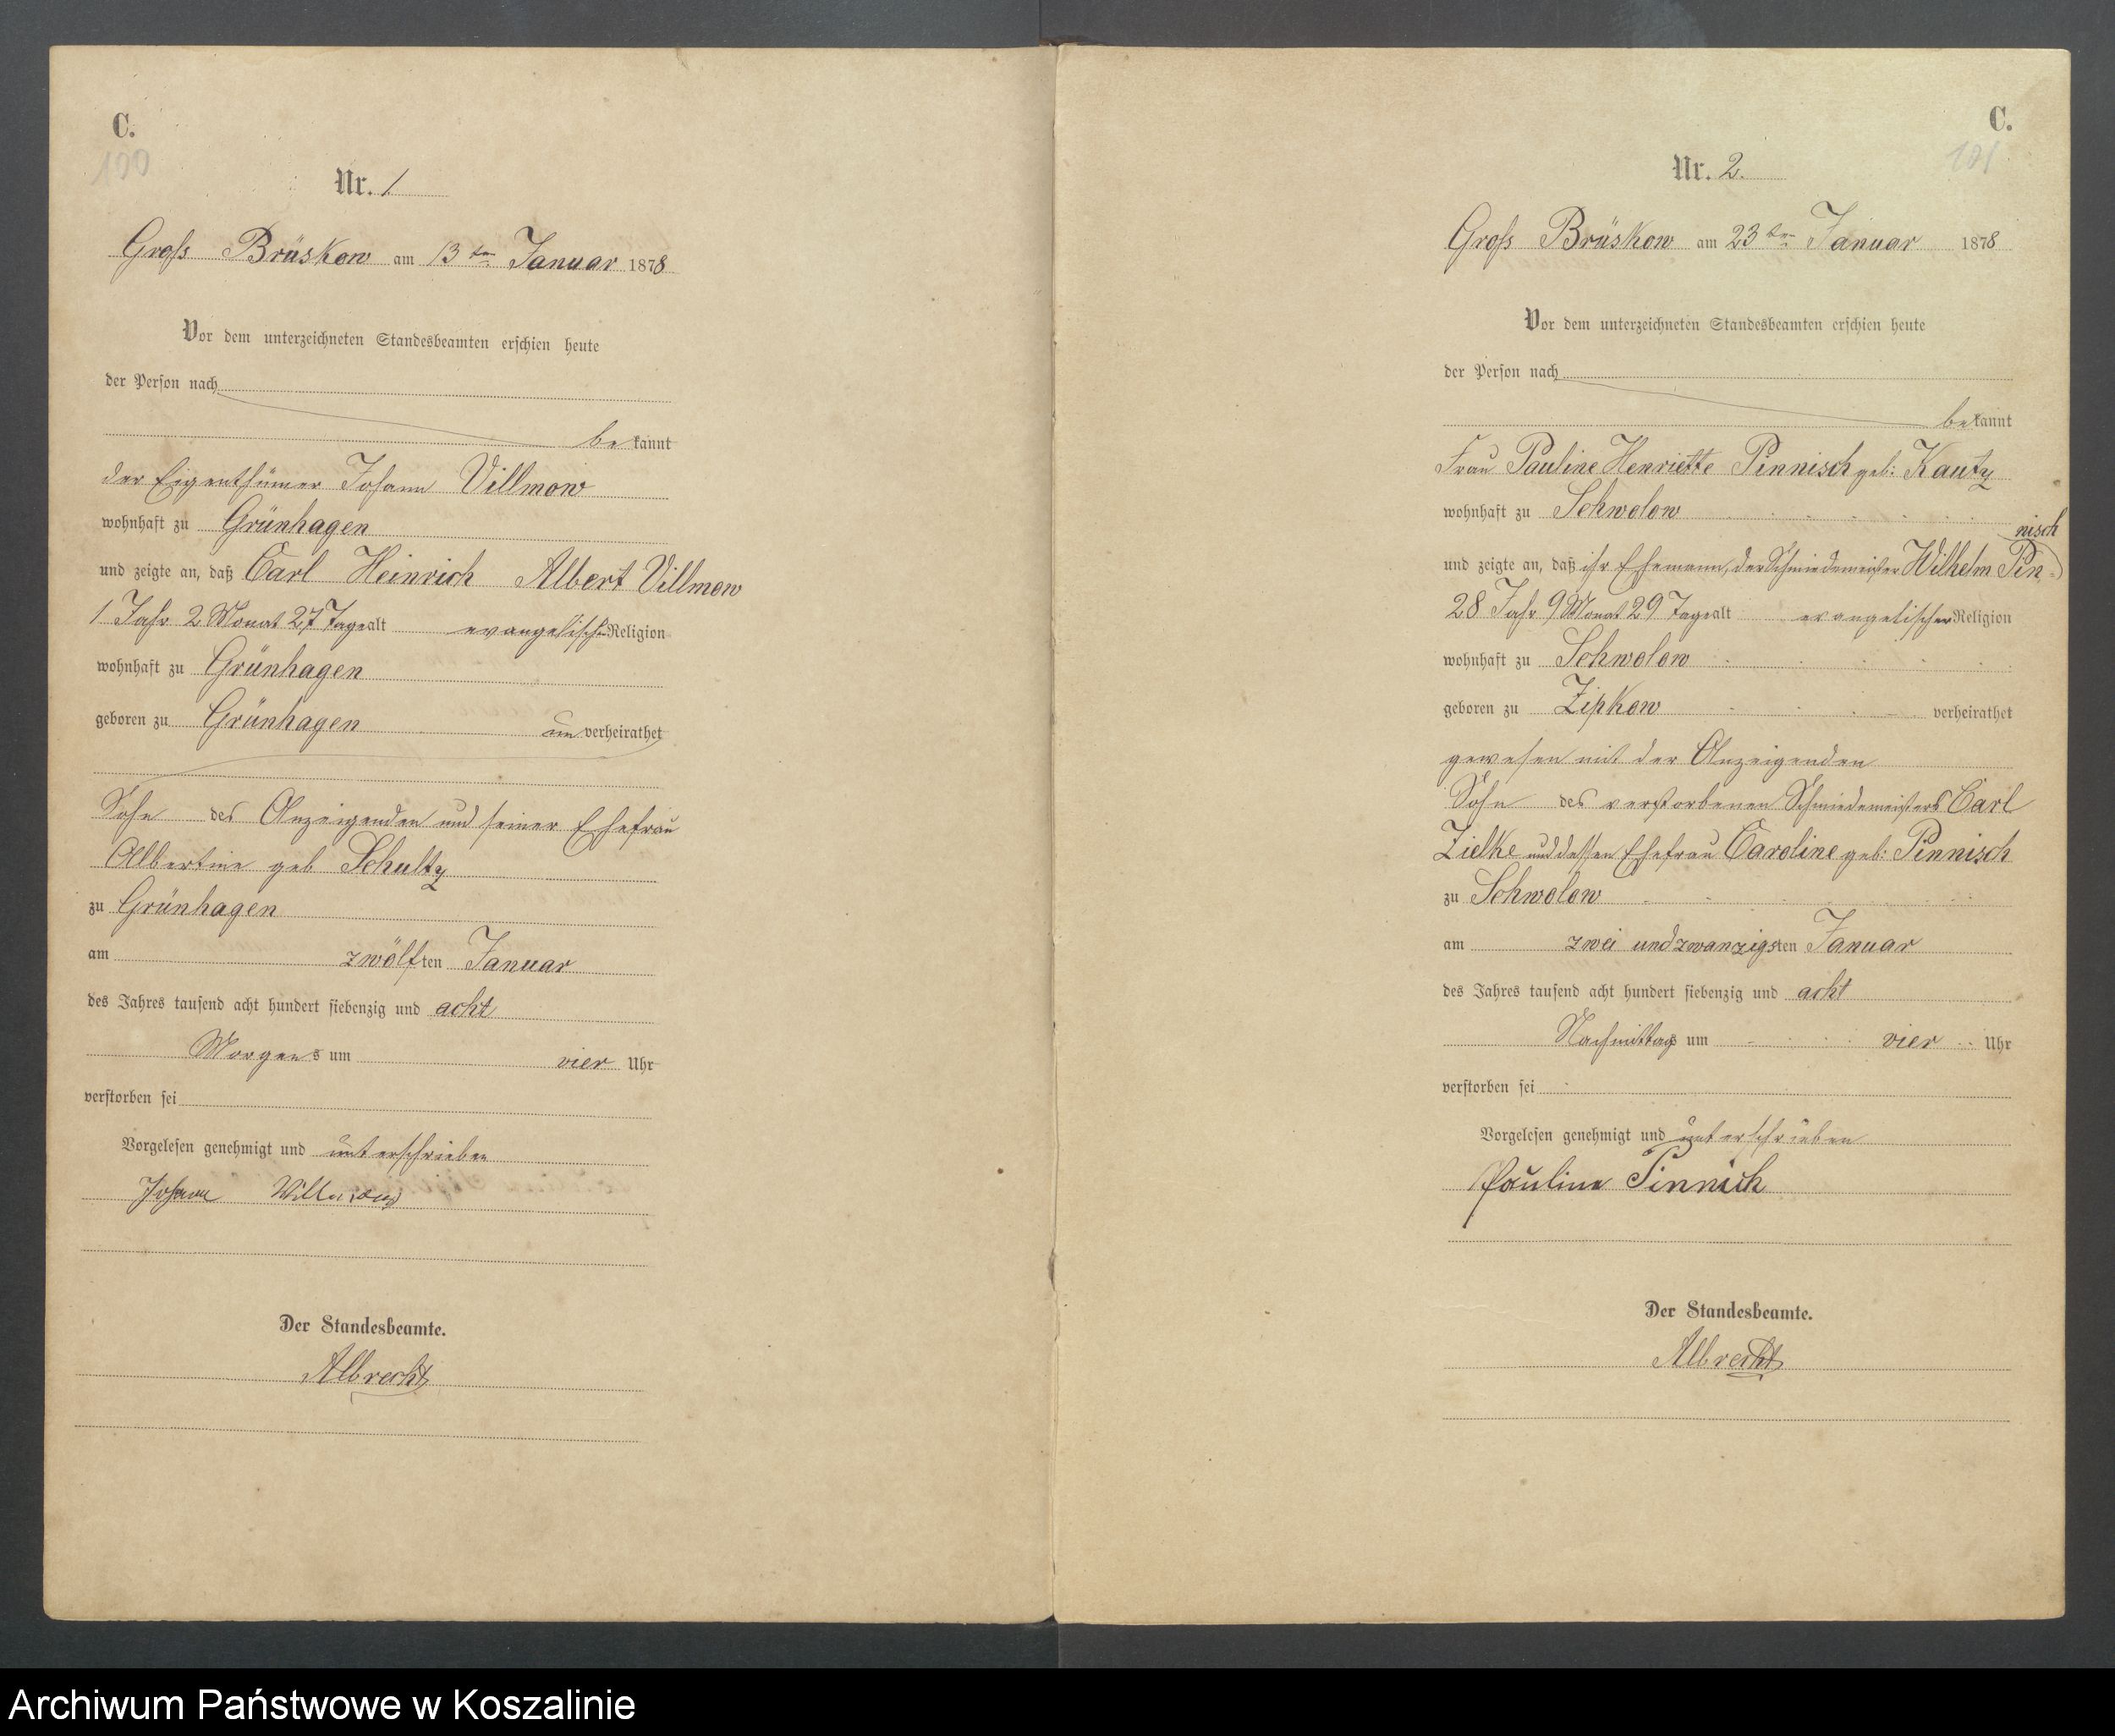 C.
100
Nr. 1
Groß Brüskow am 13ten Januar 1878
Vor dem unterzeichneten Standesbeamten erschien heute
der Person nach
bekannt
der Eigenthümer Johann Villmow
wohnhaft zu Grünhagen
und zeigte an, daß Carl Heinrich Albert Villmow
1 Jahr 2 Monat 27 Tage alt evangelischer Religion
wohnhaft zu Grünhagen
geboren zu Grünhagen unverheirathet
Sohn des Anzeigenden und seiner Ehefrau
Albertine geb Schultz
zu Grünhagen
am zwölften Januar
des Jahres tausend acht hundert siebenzig und acht
Morgens um vier Uhr
verstorben sei
Vorgelesen genehmigt und unterschrieben
Johann
Der Standesbeamte.
Albrecht
C.
101
Nr. 2.
Groß Brüskow am 23ten Januar 1878
Vor dem unterzeichneten Standesbeamten erschien heute
der Person nach
bekannt
Frau Pauline Henriette Pinnisch geb: Kautz
wohnhaft zu Schwolow
und zeigte an, daß ihr Ehemann, der Schmiedemeister Wilhelm Pin-
nisch
28 Jahr 9 Monat 29 Tage alt evangelischer Religion
wohnhaft zu Schwolow
geboren zu Zipkow verheirathet
gewesen mit der Anzeigenden
Sohn des verstorbenen Schmiedemeisters Carl
Zielke und dessen Ehefrau Caroline geb: Pinnisch
zu Schwolow
am zwei und zwanzigsten Januar
des Jahres tausend acht hundert siebenzig und acht
Nachmittags um vier Uhr
verstorben sei
Vorgelesen genehmigt und unterschrieben
Pauline Pinnich
Der Standesbeamte.
Albrecht
Archiwum Państwowe w Koszalinie